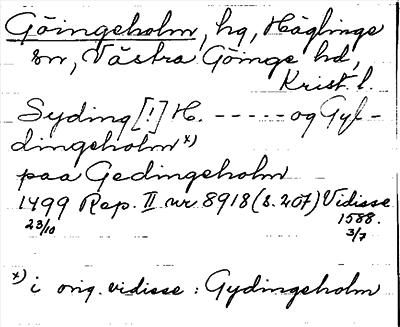 Göingeholm, hg, Häglinge
sn, Västra Göinge hd,
Krist. l.
Syding [!] H. ----- og Gyl-
dingeholm x)
paa Gedingeholm
1499 Rep. II nr 8918 (s. 207) Vidisse
23/10 1588.
3/7
x) i orig. vidisse : Gydingeholm